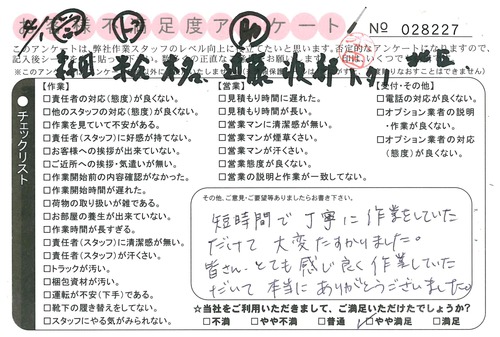 お客様不満足度アンケート
No 028227
このアンケートは、弊社作業スタッフのレベル向上に役立てたいと思います。否定的なアンケートになりますので、
チェックリスト
【作業】
□責任者の対応(態度)が良くない。
□他のスタッフの対応(態度)が良くない。
□作業を見ていて不安がある。
□責任者(スタッフ)に好感が持てない。
□お客様への挨拶が出来ていない。
□ご近所への挨拶・気遣いが無い。
□作業開始前の内容確認がなかった。
□作業開始時間が遅れた。
□荷物の取り扱いが雑である。
□お部屋の養生が出来ていない。
□作業時間が長すぎる。
□責任者(スタッフ)に清潔感が無い。
□責任者(スタッフ)が汗くさい。
□トラックが汚い。
□梱包資材が汚い。
□運転が不安(下手)である。
□靴下の履き替えをしてない。
□スタッフにやる気がみられない。
【営業】
□見積もり時間に遅れた。
□見積もり時間が長い。
□営業マンに清潔感が無い。
□営業マンが汗くさい。
□営業マンが煙草くさい。
□営業態度が良くない。
□営業の説明と作業が一致してない。
【受付・その他】
□電話の対応が良くない。
□オプション業者の説明
・作業が良くない。
□オプション業者の対応
(態度)が良くない。
その他、ご意見・ご要望等ありましたらお書き下さい。
短時間で丁寧に作業をしていた
だけて大変たすかりました。
皆さん、とても感じ良く作業していた
だいて本当にありがとうございました。
☆当社をご利用いただきまして、ご満足いただけたでしょうか?
□不満 □やや不満 □普通 □やや満足 □満足